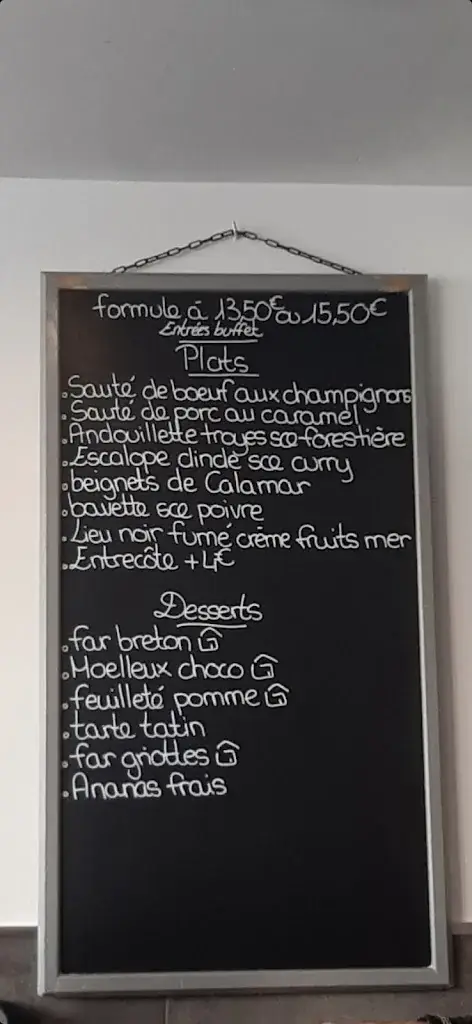 formule à 13,50€ ou 15,50€
Entrées buffet
Plats
. Sauté de boeuf aux champignons
. Sauté de porc au caramel
. Andouillette troyes sce forestière
. Escalope dinde sce curry
. beignets de Calamar
. bavette sce poivre
. Lieu noir fumé crème fruits mer
. Entrecôte +4€
Desserts
. far breton
. Moelleux choco
. feuilleté pomme
. tarte tatin
. far griottes
. Ananas frais